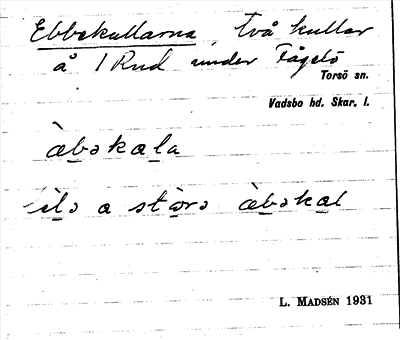 Ebbekullarna, två kullar
å 1 Rud under Fågelö
Torsö sn.
Vadsbo hd. Skar. l.
àbəkala
lılə a stɔrə àbəkal
L. MADSÉN 1931